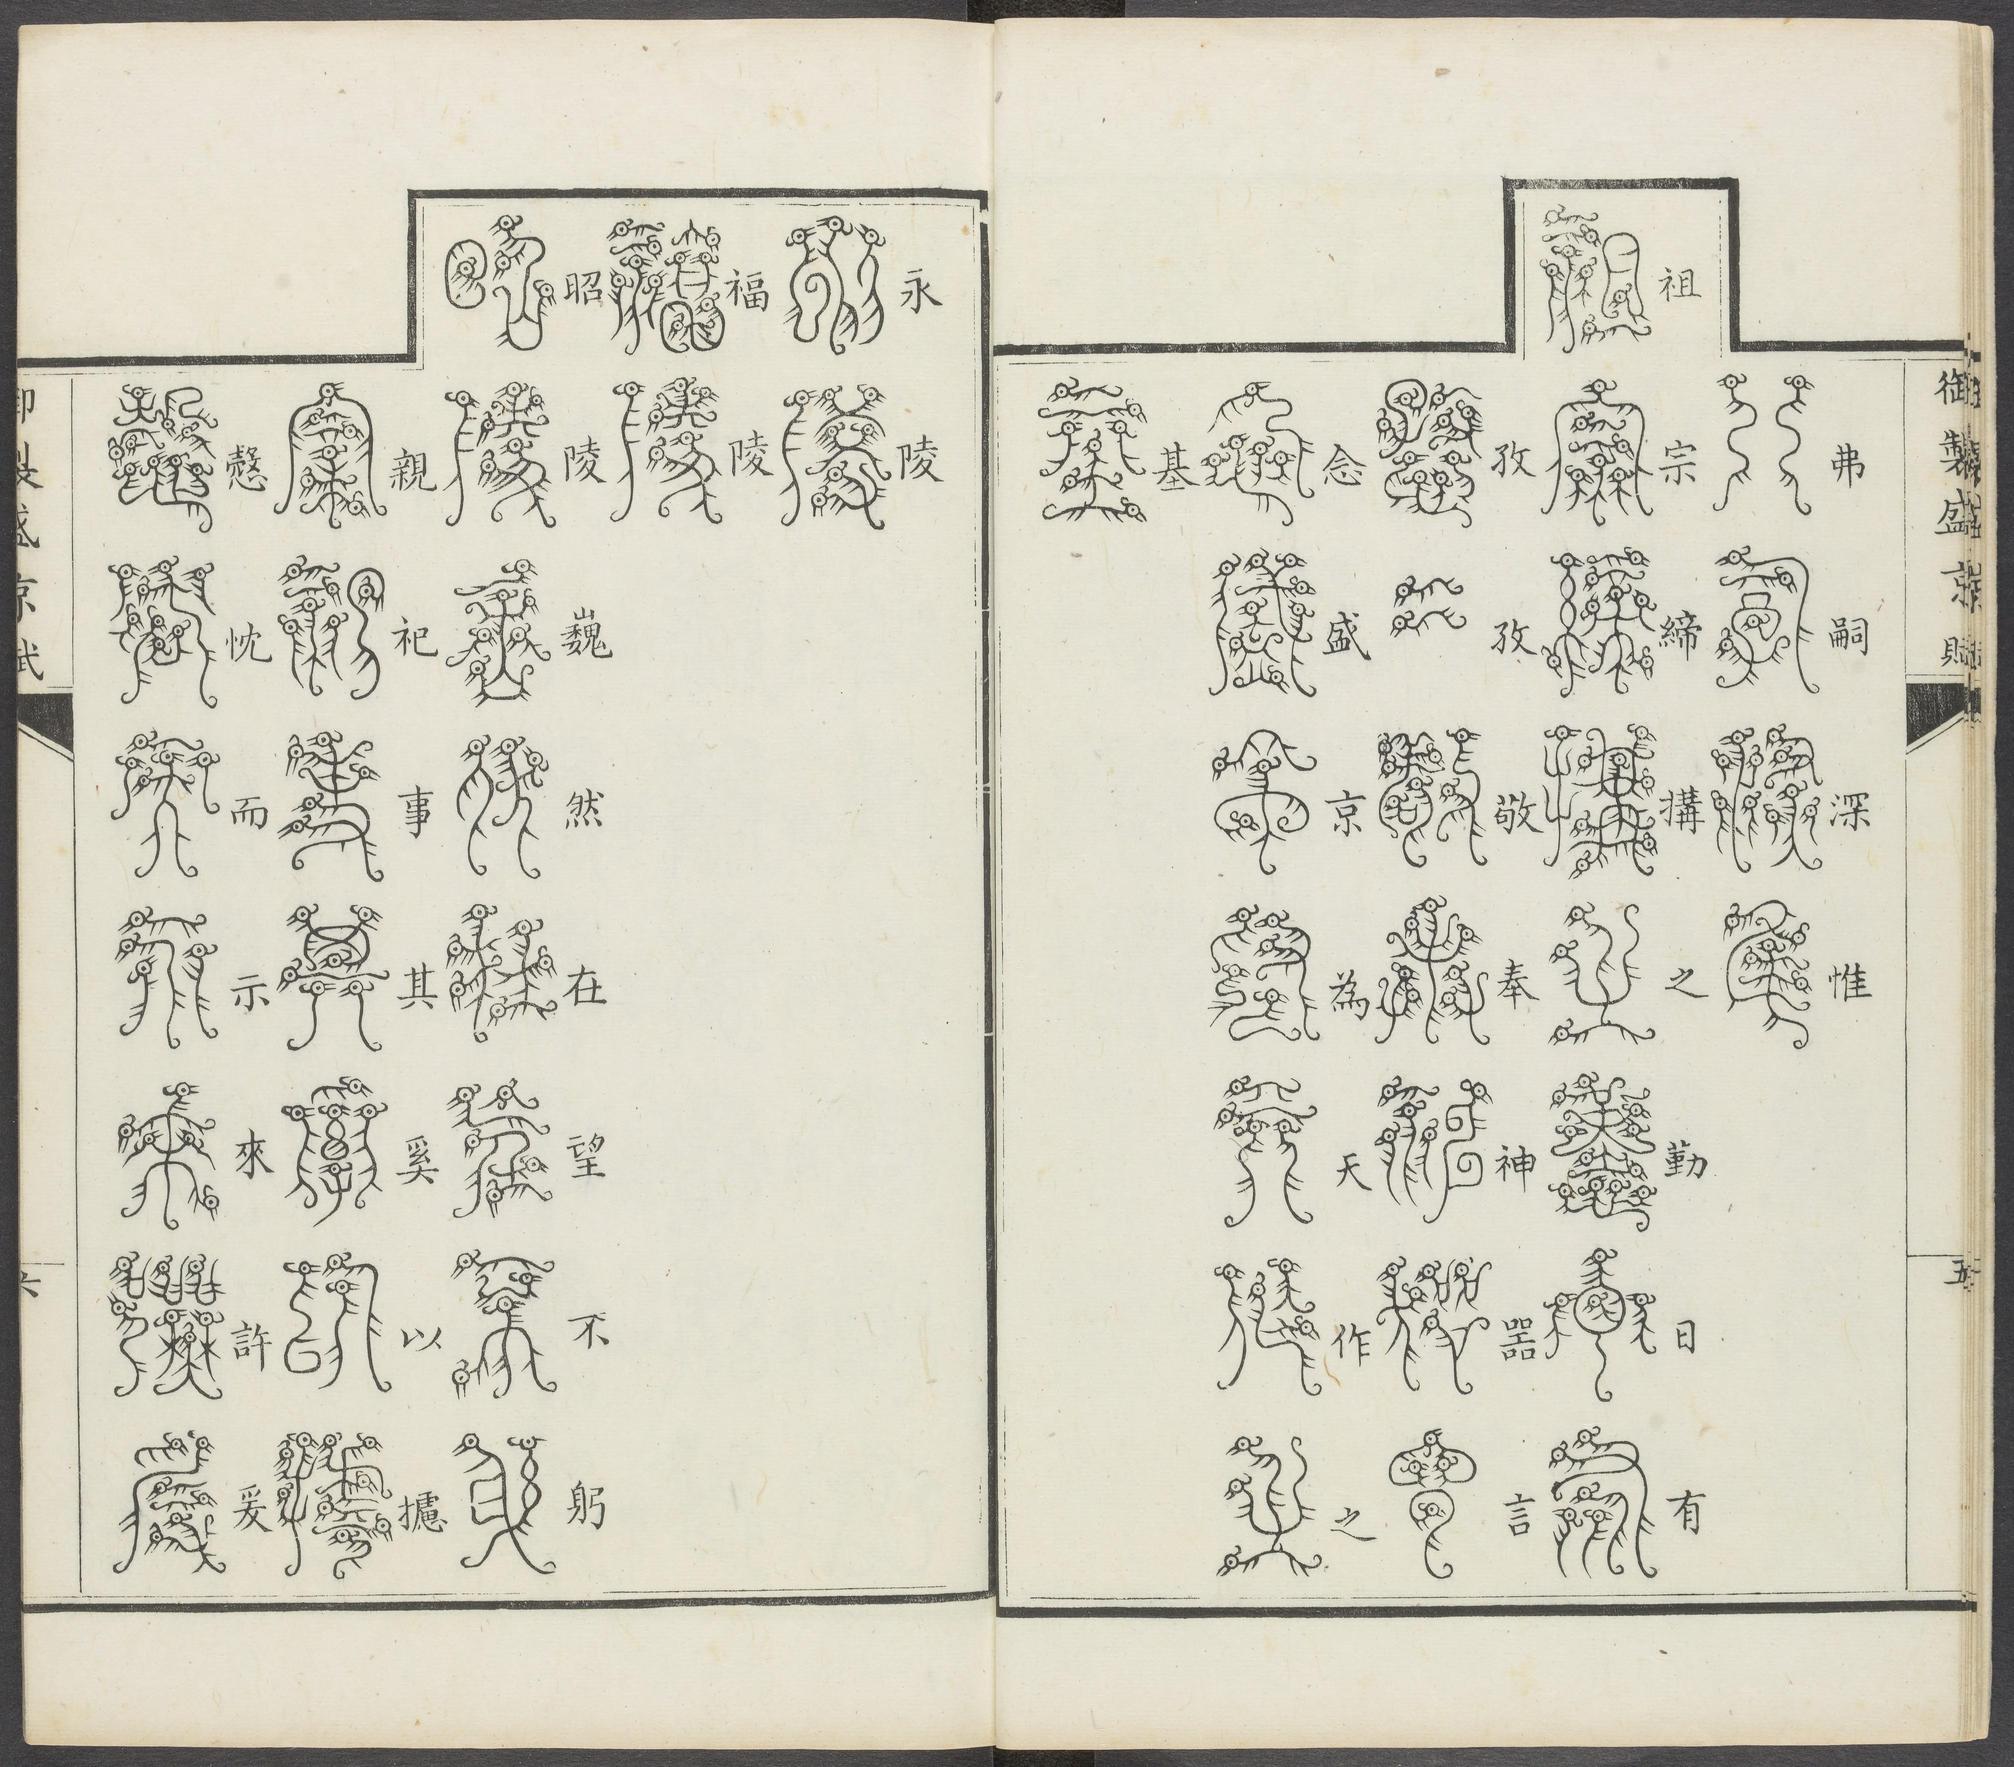 御製盛京賦
五
弗嗣深惟
祖宗締搆之勤日有
孜孜敬奉神器言
念盛京為天作之
基
永陵
福陵
昭陵巍然在望不躬
親祀事其奚以攄
慤忱而示來許爰
御製盛京賦
六